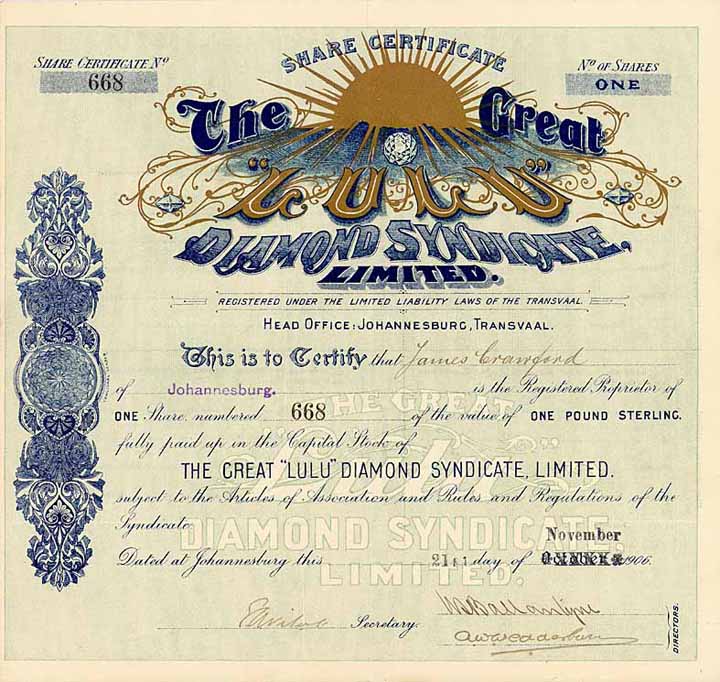 SHARE CERTIFICATE
SHARE CERTIFICATE No
668
No OF SHARES
ONE
The Great
"LULU"
DIAMOND SYNDICATE,
LIMITED.
REGISTERED UNDER THE LIMITED LIABILITY LAWS OF THE TRANSVAAL.
HEAD OFFICE: JOHANNESBURG, TRANSVAAL.
This is to Certify that James Crawford
of Johannesburg. is the Registered Proprietor of
ONE Share, numbered 668 of the value of ONE POUND STERLING.
fully paid up in the Capital Stock of
THE GREAT "LULU" DIAMOND SYNDICATE, LIMITED.
subject to the Articles of Association and Rules and Regulations of the
Syndicate.
November
Dated at Johannesburg this 21st day of 1906.
Secretary.
DIRECTORS.
THE GREAT
"Lulu"
DIAMOND SYNDICATE,
LIMITED.